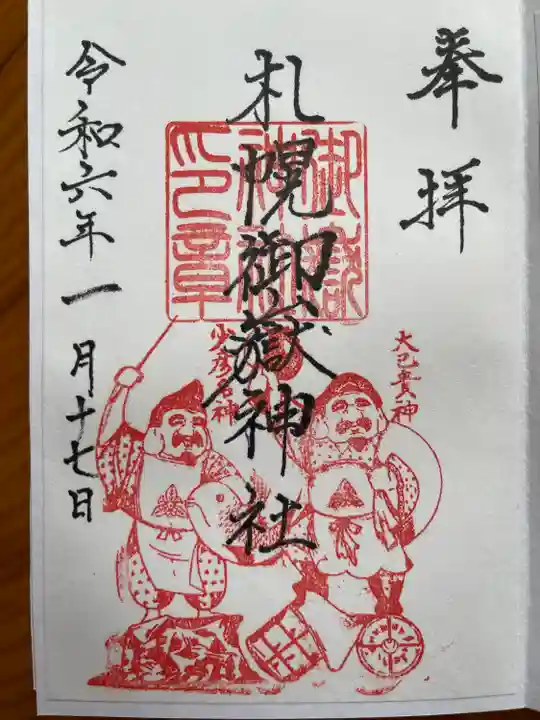 奉拝
札幌御嶽神社
御嶽神社印章
大己貴神
少彦名神
令和六年一月十七日